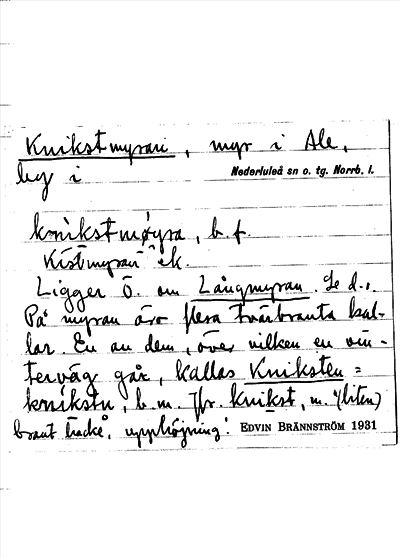 Knikstmyran, myr i Ale,
by i Nederluleå sn o. tg. Norrb. l.
knikstmøyra, b. f.
Kistmyran ek.
Ligger Ö. om Långmyran. Se d.
På myran äro flera tvärbranta kul-
lar. En av dem, över vilken en vin-
terväg går, kallas Kniksten =
knikstn, b. m. Jfr. knikst, m. "(liten)
brant backe, upphöjning". EDVIN BRÄNNSTRÖM 1931